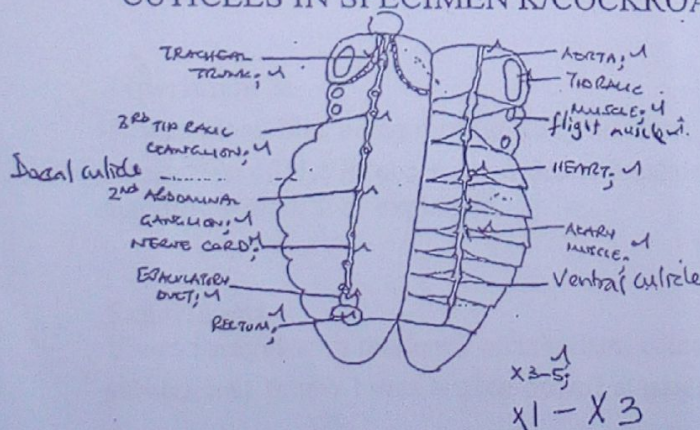 CUTICLES IN SPECIMEN K/COCKROA
TRACHEAL
TRUNK;
3RD THORACIC
GANGLION;
Dorsal cuticle
2ND ABDOMINAL
GANGLION;
NERVE CORD;
EJACULATORY
DUCT;
RECTUM;
AORTA;
THORACIC
MUSCLE;
flight muscle
HEART;
ALARY
MUSCLE.
Ventral cuticle
X3-5;
X1 - X3